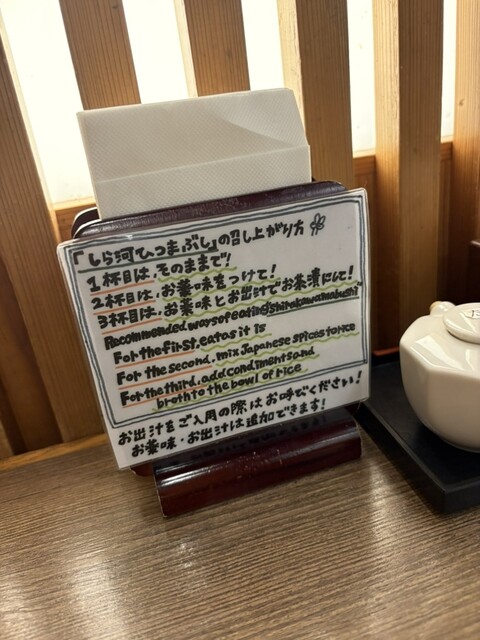 「しら河ひつまぶし」の召し上がり方
1杯目は、そのままで!
2杯目は、お薬味をつけて!
3杯目は、お薬味とお出汁でお茶漬にして!
Recommended ways of eating "Shirakawamabushi"
For the first, eat as it is
For the second, mix Japanese spices to rice
For the third, add condiments and
broth to the bowl of rice
お出汁をご入用の際はお呼びください!
お薬味・お出汁は追加できます!